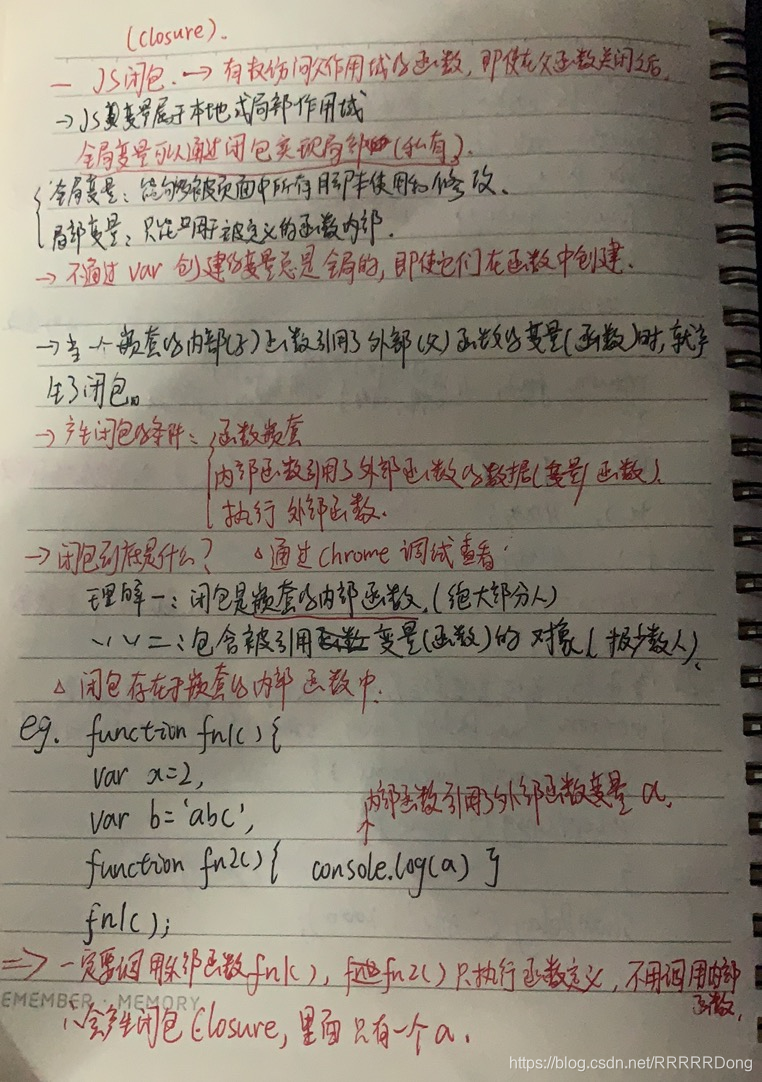 (closure).
一 JS闭包. → 有权访问父作用域的函数, 即使在父函数关闭之后.
→ JS变量属于本地或局部作用域
全局变量可以通过闭包实现局部(私有).
全局变量: 能够被页面中所有脚本使用和修改.
局部变量: 只能用于被定义的函数内部.
→ 不通过 var 创建的变量总是全局的, 即使它们在函数中创建.
→ 当一个嵌套的内部(子)函数引用了外部(父)函数的变量(函数)时, 就产
生了闭包。
→ 产生闭包的条件: 函数嵌套
内部函数引用了外部函数的数据(变量/函数).
执行外部函数.
→ 闭包到底是什么? △通过Chrome调试查看:
理解一: 闭包是嵌套的内部函数. (绝大部分人)
〃 〃 二: 包含被引用变量(函数)的对象 (极少数人).
△ 闭包存在于嵌套的内部函数中.
eg. function fn1() {
var a=2,
var b='abc',
内部函数引用了外部函数变量 a.
function fn2() { console.log(a) }
fn1();
=> 一定要调用外部函数fn1(), fn2() 只执行函数定义, 不用调用内部
函数,
EMEMBER · MEMORY
会产生闭包 Closure, 里面只有一个 a.
https://blog.csdn.net/RRRRRDong